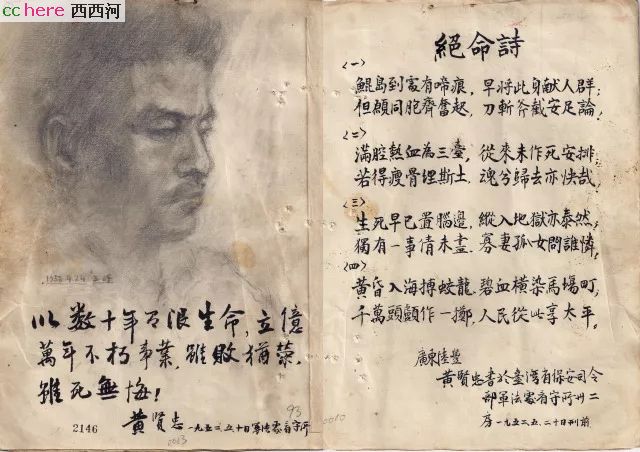 cchere 西西河
1952.4.24
以数十年有限生命,立億
萬年不朽事業,雖敗猶榮,
雖死無悔!
黃賢忠 一九五二、五、十日軍法處看守所
2146
93
0013
0010
絕命詩
<一>
鯤島到處有啼痕,早將此身献人群;
但願同胞齊奮起,刀斬斧截安足論;
<二>
滿腔熱血為三臺,從來未作死安排;
若得瘦骨埋斯土,魂兮歸去亦快哉
<三>
生死早已置腦邊,縱入地獄亦泰然;
獨有一事情未盡,寡妻孤女問誰憐,
<四>
黃昏入海搏蛟龍,碧血橫染馬場町,
千萬頭顱作一擲,人民從此享太平。
廣東陸豐
黃賢忠書於臺灣省保安司令
部軍法處看守所卅二
房 一九五二、五、二十日刑前